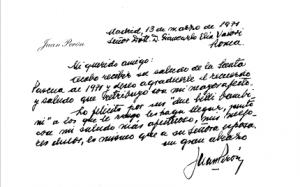 Madrid, 13 de marzo de 1971
Juan Perón
Señor Dott. D. Giancarlo Elia Valori
Roma.
Mi querido amigo:
Acabo recibir su saludo de la Santa
Pascua de 1971 y deseo agradecerle el recuerdo
y saludo que retribuyo con mi mayor afecto.
Lo felicito por sus "due belli bambi-
ni" a los que le ruego les haga llegar, junto
con mi saludo más afectuoso, mis mejo-
res deseos, lo mismo que a su señora esposa.
un gran abrazo
Juan Perón